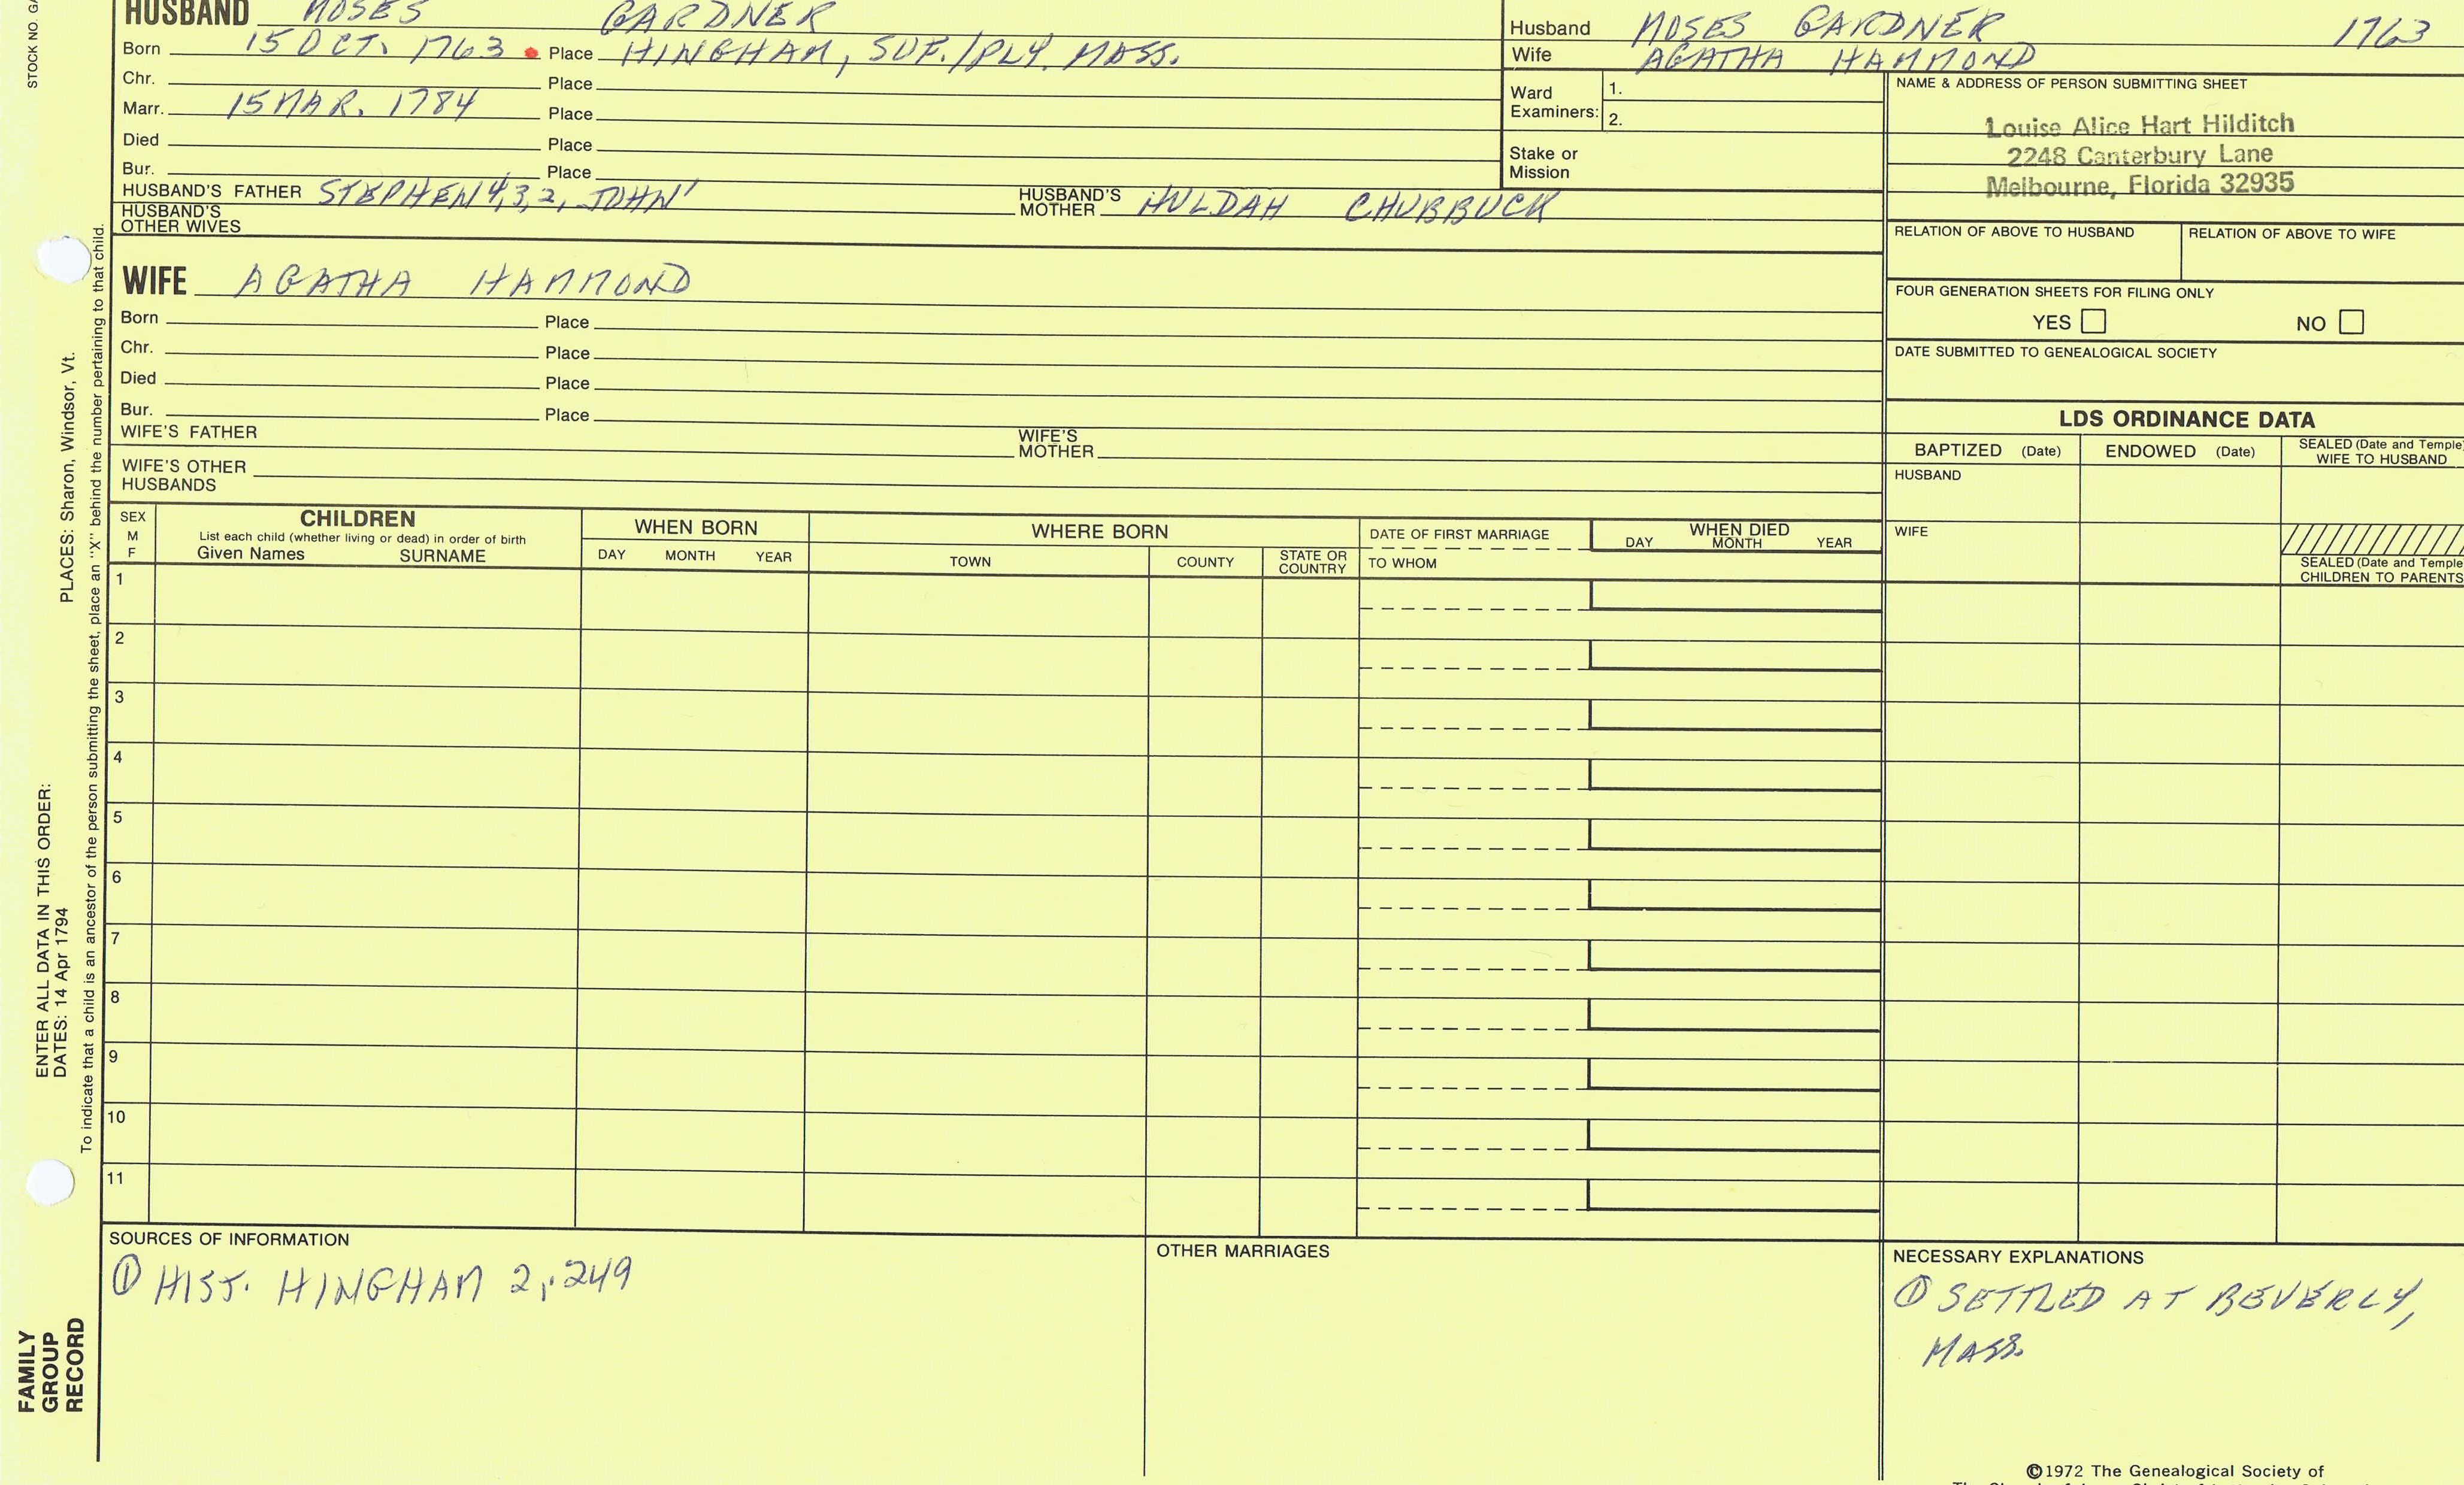 STOCK NO.
HUSBAND MOSES GARDNER
Born 15 OCT. 1763 Place HINGHAM, SUF./PLY. MASS.
Chr. Place
Marr. 15 MAR. 1784 Place
Died Place
Bur. Place
HUSBAND'S FATHER STEPHEN 4,3,2, JOHN' HUSBAND'S MOTHER HULDAH CHUBBUCK
HUSBAND'S OTHER WIVES
Husband MOSES GARDNER 1763
Wife AGATHA HAMMOND
Ward Examiners: 1.
2.
Stake or Mission
NAME & ADDRESS OF PERSON SUBMITTING SHEET
Louise Alice Hart Hilditch
2248 Canterbury Lane
Melbourne, Florida 32935
RELATION OF ABOVE TO HUSBAND RELATION OF ABOVE TO WIFE
FOUR GENERATION SHEETS FOR FILING ONLY
YES NO
DATE SUBMITTED TO GENEALOGICAL SOCIETY
WIFE AGATHA HAMMOND
Born Place
Chr. Place
Died Place
Bur. Place
WIFE'S FATHER WIFE'S MOTHER
WIFE'S OTHER HUSBANDS
LDS ORDINANCE DATA
BAPTIZED (Date) ENDOWED (Date) SEALED (Date and Temple)
WIFE TO HUSBAND
HUSBAND
WIFE
SEALED (Date and Temple
CHILDREN TO PARENTS
SEX
M
F
CHILDREN
List each child (whether living or dead) in order of birth
Given Names SURNAME
WHEN BORN
DAY MONTH YEAR
WHERE BORN
TOWN COUNTY STATE OR COUNTRY
DATE OF FIRST MARRIAGE
TO WHOM
WHEN DIED
DAY MONTH YEAR
1
2
3
4
5
6
7
8
9
10
11
SOURCES OF INFORMATION
① HIST. HINGHAM 2,:249
OTHER MARRIAGES
NECESSARY EXPLANATIONS
① SETTLED AT BEVERLY,
MASS.
©1972 The Genealogical Society of
ENTER ALL DATA IN THIS ORDER:
DATES: 14 Apr 1794 PLACES: Sharon, Windsor, Vt.
To indicate that a child is an ancestor of the person submitting the sheet, place an "X" behind the number pertaining to that child.
FAMILY
GROUP
RECORD